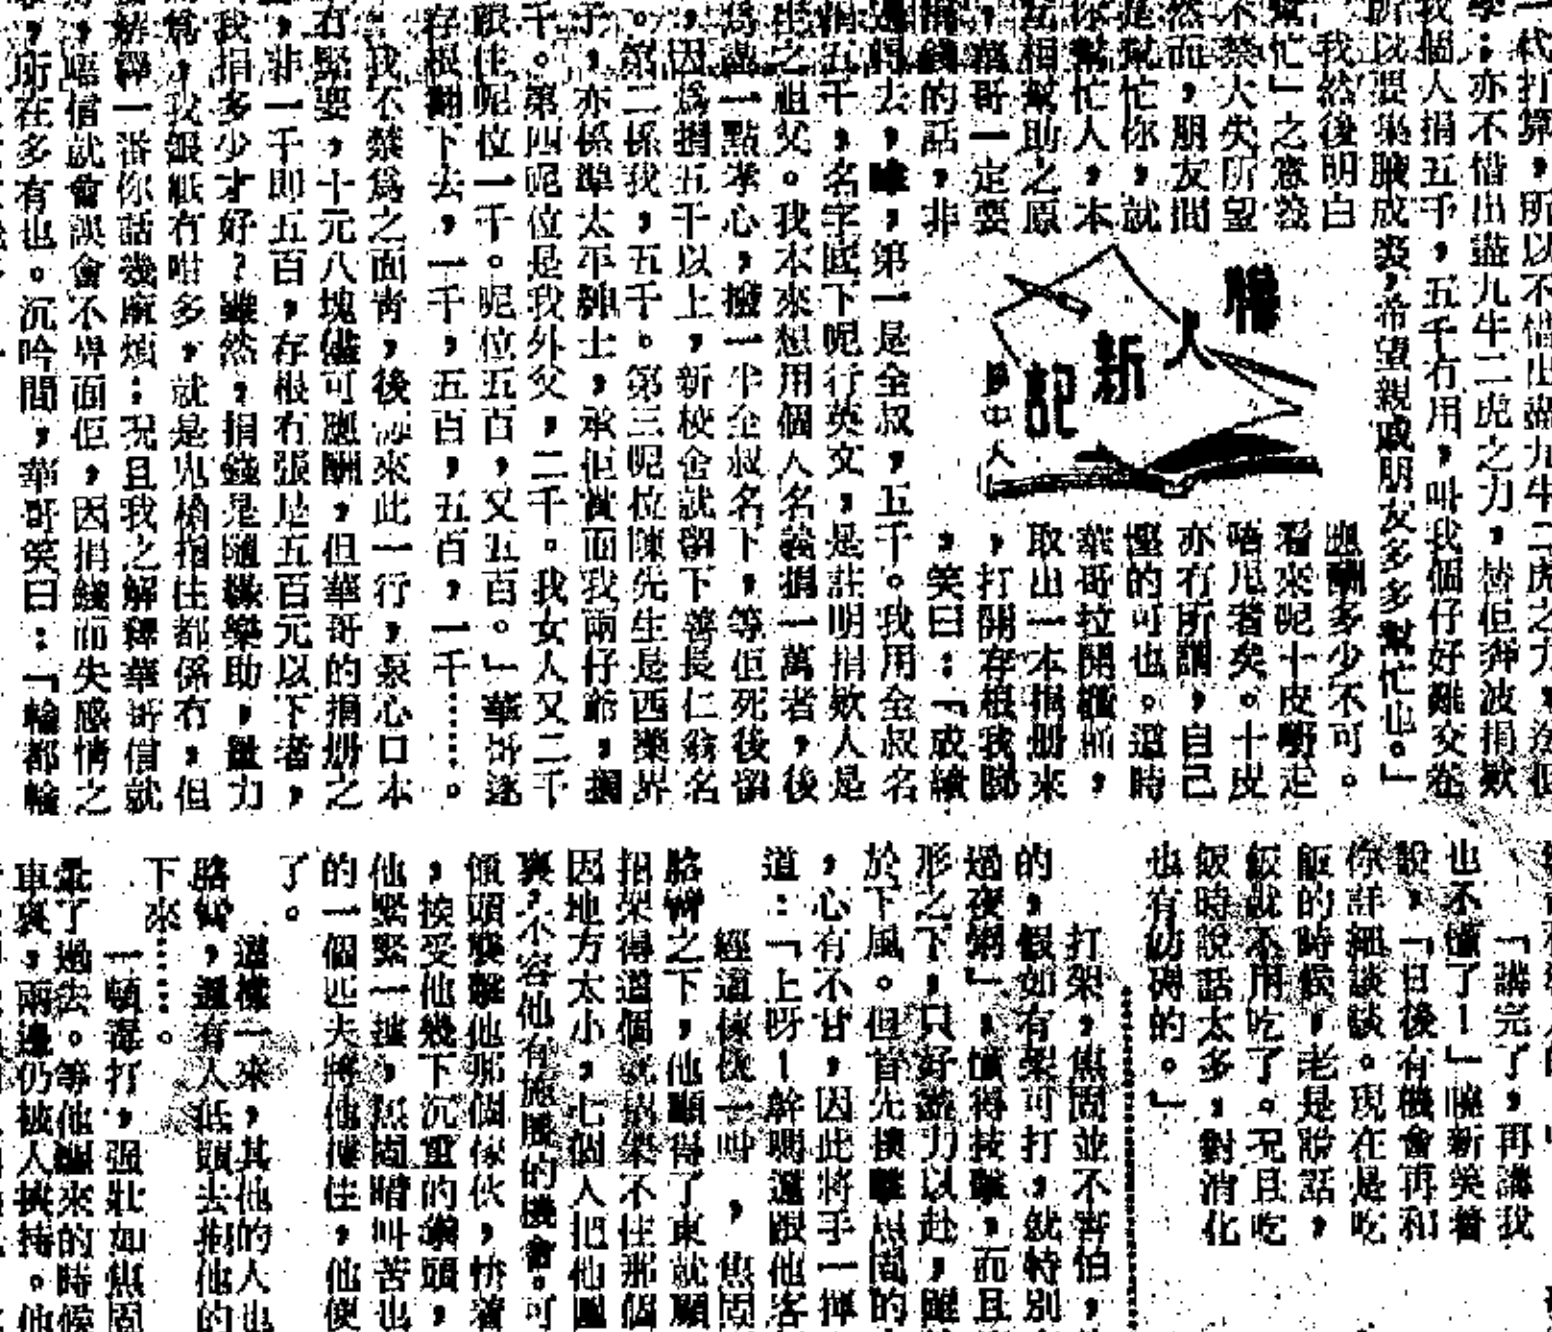 一代打算,所以不惜出盡九牛二虎之力,
學;亦不惜出盡九牛二虎之力,替佢奔波捐欵
我個人捐五千,五千冇用,叫我個仔好難交卷
所以要集腋成裘,希望親戚朋友多多幫忙也。」
我然後明白
幫忙」之意義
不禁大失所望
然而,朋友間
是幫忙你,就
你幫忙人,本
互相幫助之原
,華哥一定要
捐錢的話,非
人新記
應酬多少不可。
看來呢十皮嘢走
唔甩者矣。十皮
亦冇所謂,自己
慳的可也。這時
華哥拉開櫃桶,
取出一本捐册來
,打開存根我睇
,笑曰:「成績
過得去,嗱,第一是全叔,五千。我用全叔名
捐五千,名字底下呢行英文,是註明捐欵人是
佢之祖父。我本來想用個人名義捐一萬者,後
爲盡一點孝心,撥一半全叔名下,等佢死後留
,因爲捐五千以上,新校舍就留下善長仁翁名
。第二係我,五千。第三呢位陳先生是西藥界
子,亦係埠太平紳士,承佢賞面我兩仔爺,捐
千。第四呢位是我外父,二千。我女人又二千
跟住呢位一千。呢位五百,又五百。」華哥逐
存根翻下去,一千,五百,五百,一千……。
我不禁爲之面青,後悔來此一行,衷心口本
冇緊要,十元八塊儘可應酬,但華哥的捐册之
,非一千即五百,存根冇張是五百元以下者,
我捐多少才好?雖然,捐錢是隨緣樂助,量力
爲,我銀紙冇咁多,就是鬼槍指住都係冇,但
解釋一番你話幾麻煩;况且我之解釋華哥信就
,唔信就會誤會不畀面佢,因捐錢而失感情之
,所在多有也。沉吟間,華哥笑曰:「輪都輪
「講完了,再講我
也不懂了!」曉新笑着
說,「日後有機會再和
你詳細談談。現在是吃
飯的時候,老是說話,
飯就不用吃了。况且吃
飯時說話太多,對消化
也有妨碍的。」
打架,焦固並不害怕,
的,假如有架可打,就特別
過夜粥」,懂得技擊,而且
形之下,只好盡力以赴,雖
於下風。但首先襲擊焦固的
,心有不甘,因此將手一揮
道:「上呀!幹嗎還跟他客
經這傢伙一呌,焦固
胳臂之下,他顧得了東就顧
招架得這個就招架不住那個
因地方太小,七個人把他圍
裏,不容他有施展的機會。可
傾頭襲擊他那個傢伙,快着
,挨受他幾下沉重的拳頭,
他緊緊一摟,焦固暗叫苦也
的一個匹夫將他摟住,他便
了。
這樣一來,其他的人也
胳臂,還有人低頭去抱他的
下來……。
一頓毒打,强壯如焦固
暈了過去。等他醒來的時候
車裏,兩邊仍被人挾持。他